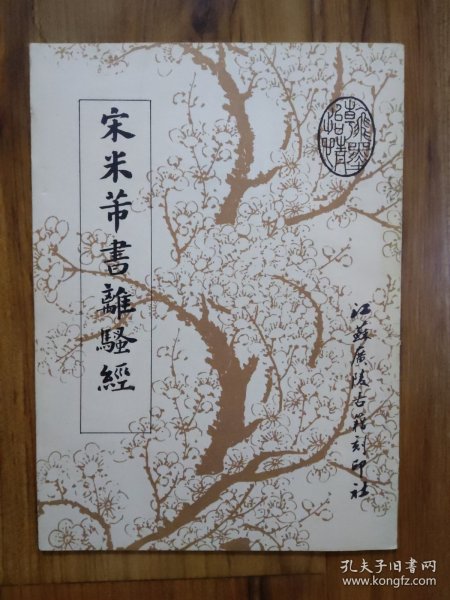 宋米芾書離騷經
江蘇廣陵古籍刻印社
孔夫子旧书网
www.kongfz.com